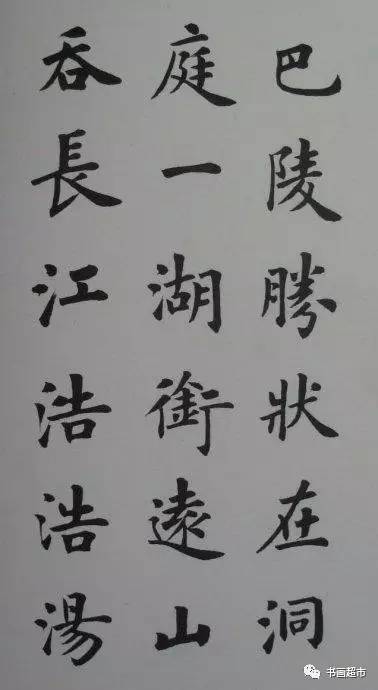 巴陵勝狀在洞
庭一湖銜遠山
吞長江浩浩湯
书画超市